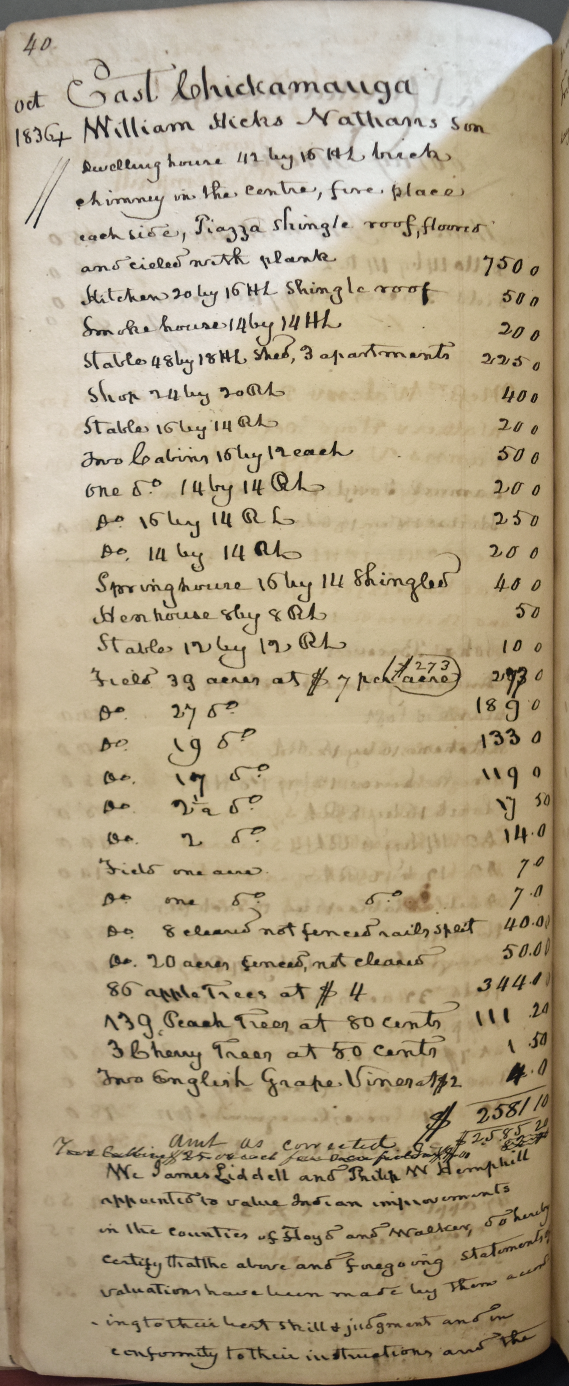 40
oct East Chickamauga
1836 x William Hicks Nathans son
Dwelling house 42 by 16 HL brick
chimney in the centre, fire place
each side, Piazza shingle roof, floored
and cieled with plank 750 0
Kitchen 20 by 16 HL Shingle roof 50 0
Smoke house 14 by 14 HL 20 0
Stable 48 by 18 HL Shed, 3 apartments 225 0
Shop 24 by 20 RL 40 0
Stable 16 by 14 RL 20 0
Two Cabins 16 by 12 each 50 0
one do 14 by 14 RL 20 0
Do. 16 by 14 RL 25 0
Do. 14 by 14 RL 20 0
Springhouse 16 by 14 Shingled 40 0
Henhouse 8 by 8 RL 5 0
Stable 12 by 12 RL 10 0
Field 39 acres at $ 7 per acre $273 273 0
Do. 27 do 189 0
Do. 19 do 133 0
Do. 17 do 119 0
Do. 2½ do 17 50
Do. 2 do 14.0
Field one acre 7 0
Do one do do 7.0
Do 8 cleared not fenced rails split 40.00
Do. 20 acres fenced, not cleared 50.00
86 apple Trees at $ 4 344.00
139 Peach Trees at 80 cents 111 20
3 Cherry Trees at 50 cents 1 50
Two English Grape Vines at $2 4.0
$ 2581 10
Amt as corrected $2585 20
We James Liddell and Philip W Hemphill
appointed to value Indian improvements
in the counties of Floyd and Walker, do hereby
certify that the above and foregoing statements of
valuations have been made by them accord
-ing to their best skill & judgment and in
conformity to their instructions and the